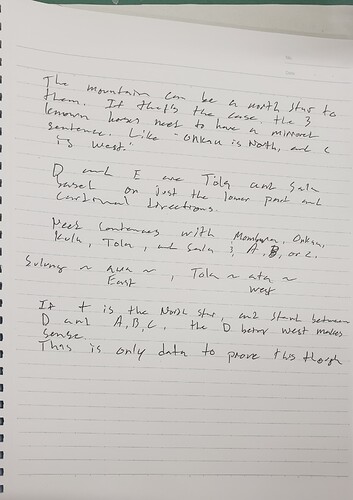 The mountain can be a north star to
them. If that's the case, the 3
known houses need to have a mirrored
sentence. Like "Onkau is North, and C
is West."
D and E are Tola and Sala
based on just the lower part and
cardinal directions.
Need sentences with Onkau,
Kula, Tola, and Sala ; A, B, or C.
Sulung ~ awa ~ , Tola ~ ata ~
East west
If t is the North Star, and stand between
D and A, B, C, the D being west makes
sense.
This is only data to prove this though